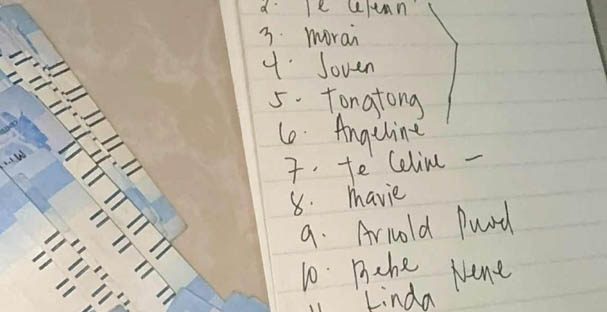 2. Te
3. Morai
4. Joven
5. Tongtong
6. Angeline
7. Te Celine -
8. Mavie
9. Arnold
10. Bebe Nene
11. Linda